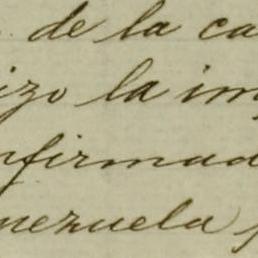 de la ca
izo la im
nfirmad
nezuela